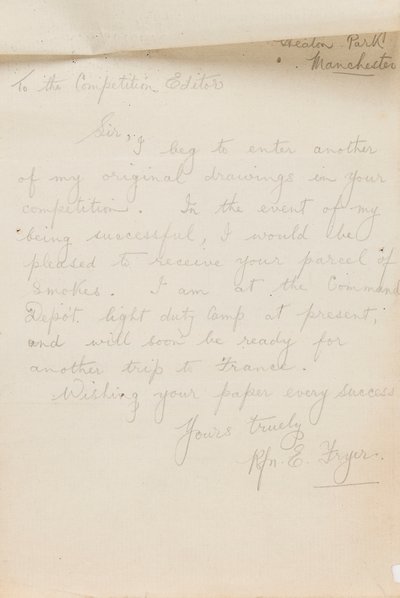 Heaton Park
Manchester
To the Competition Editor
Sir,
I beg to enter another
of my original drawings in your
competition. In the event of my
being successful, I would be
pleased to receive your parcel of
Smokes. I am at the Command
Depôt. light duty Camp at present,
and will soon be ready for
another trip to France.
Wishing your paper every success
Yours truely
Rfn. E. Fryer.